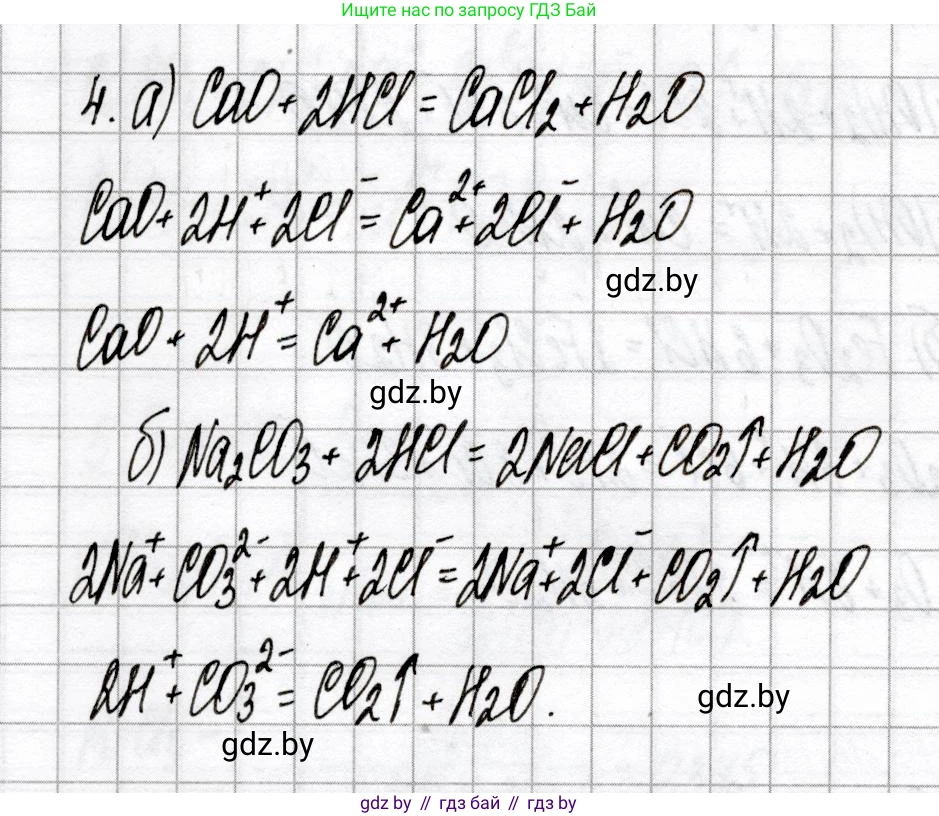 Ищите нас по запросу ГДЗ Бай
4. а) CaO + 2HCl = CaCl₂ + H₂O
CaO + 2H⁺ + 2Cl⁻ = Ca²⁺ + 2Cl⁻ + H₂O
gdz.by
CaO + 2H⁺ = Ca²⁺ + H₂O
gdz.by
б) Na₂CO₃ + 2HCl = 2NaCl + CO₂↑ + H₂O
2Na⁺ + CO₃²⁻ + 2H⁺ + 2Cl⁻ = 2Na⁺ + 2Cl⁻ + CO₂↑ + H₂O
2H⁺ + CO₃²⁻ = CO₂↑ + H₂O.
gdz.by
gdz.by
gdz by // гдз бай // гдз by